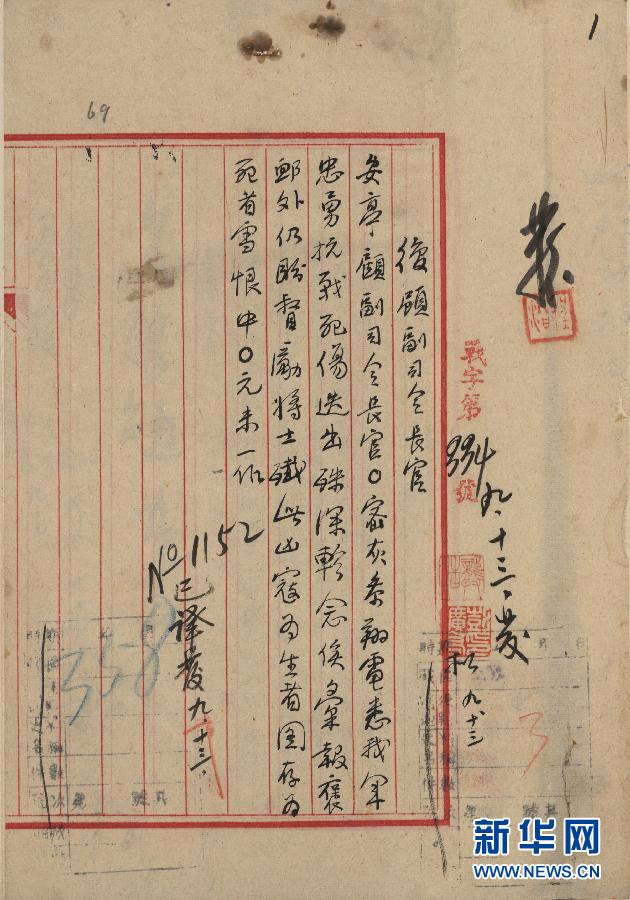 1
69
戰字第
號
九、十三、發
九、十三
復顧副司令長官
安亭顧副司令長官○密灰参翔電悉我軍
忠勇抗戰死傷迭出殊深軫念俟彙報褒
卹外仍盼督勵将士殲此凶寇為生者圖存為
死者雪恨中○元未一作
No 1152
已譯發九、十三、
358
3
新华网
WWW.NEWS.CN